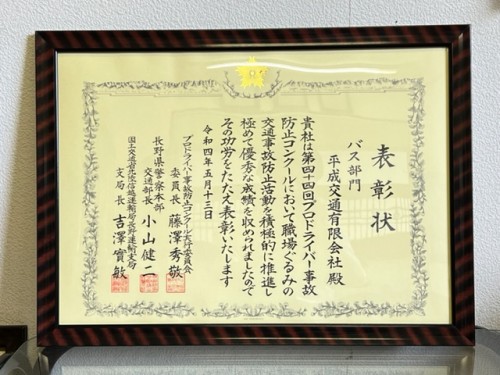 表彰状
バス部門
平成交通有限会社殿
貴社は第四十四回プロドライバー事故
防止コンクールにおいて職場ぐるみの
交通事故防止活動を積極的に推進し
極めて優秀な成績を収められましたので
その功労をたたえ表彰いたします
令和四年五月十三日
プロドライバー事故防止コンクール実行委員会
委員長 藤澤秀敬
長野県警察本部
交通部長 小山健二
国土交通省北陸信越運輸局長野運輸支局
支局長 吉澤實敏